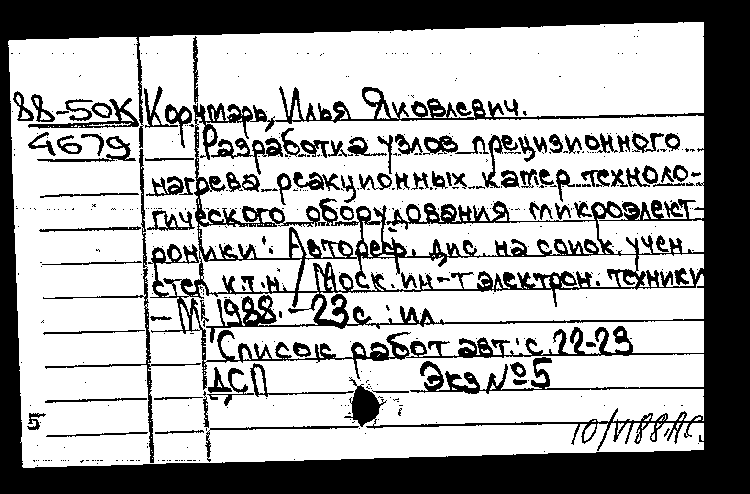 88-50К Корнтарь, Илья Яковлевич.
4679 Разработка узлов прецизионного
нагрева реакционных камер техноло-
гического оборудования микроэлект-
роники: Автореф. дис. на соиск. учен.
степ. к.т.н. / Моск. ин-т электрон. техники
- М. 1988. - 23 с. : ил.
Список работ авт.: с. 22-23
ДСП Экз №5
5
10/VI 88. А.С.